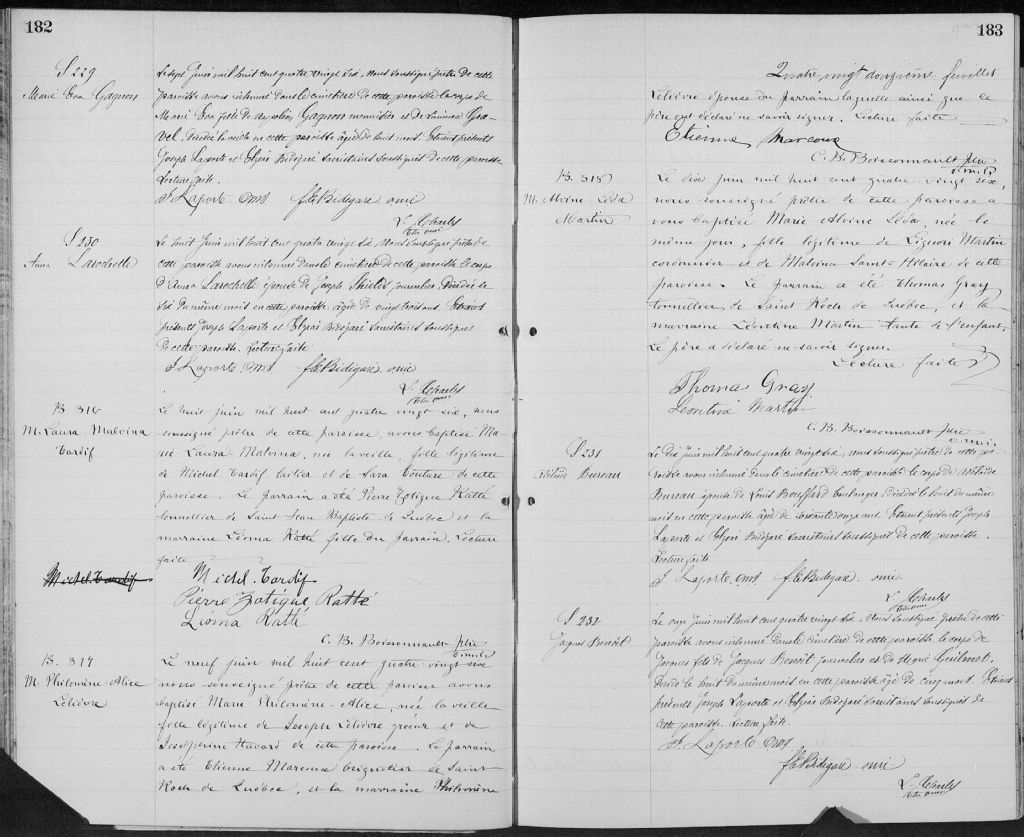 182
S 229
Marie Eva Gagnon
Le sept Juin mil huit cent quatre vingt six, Nous soussigné prêtre de cette
paroisse avons inhumé dans le cimetière de cette paroisse le corps de
Marie Eva fille de Napoléon Gagnon menuisier et de Lumina Gra-
vel, décédée la veille en cette paroisse âgée de huit mois. Etaient présents
Joseph Laporte et Elzéar Bédégaré Sacristains soussignés de cette paroisse.
Lecture faite.
J. Laporte omi f. E. Bédégaré omi
L. Charles
Ptre omi
S 230
Anna Larochelle
Le huit Juin mil huit cent quatre vingt six, Nous soussigné prêtre de
cette paroisse avons inhumé dans le cimetière de cette paroisse le corps
d'Anna Larochelle épouse de Joseph Shields journalier. Décédée le
six du même mois en cette paroisse âgée de vingt trois ans. Etaient
présents Joseph Laporte et Elzéar Bédégaré Sacristains soussignés
de cette paroisse. Lecture faite
J. Laporte omi f. E. Bédégaré omi
L. Charles
Ptre omi
B. 316
M. Laura Malvina
Tardif
Le huit juin mil huit cent quatre vingt six, nous
soussigné prêtre de cette paroisse, avons baptisé Ma-
rie Laura Malvina, née la veille, fille légitime
de Michel Tardif laitier et de Sara Couture de cette
paroisse. Le parrain a été Pierre Zotique Ratté
tonnellier de Saint Jean Baptiste de Québec et la
marraine Léoma Ratté fille du parrain. Lecture
faite
Michel Tardif
Michel Tardif
Pierre Zotique Ratté
Leoma Ratté
C. B. Boissonnault ptre
o.m.i.
B. 317
M. Philomène Alice
Lelièvre
Le neuf juin mil huit cent quatre vingt six
nous soussigné prêtre de cette paroisse avons
baptisé Marie Philomène Alice, née la veille
fille légitime de Joseph Lelièvre et de
Joséphine Havard de cette paroisse. Le parrain
a été Etienne Marcoux briquetier de Saint
Roch de Québec, et la marraine Philomène
183
Quatre vingt douzième feuillet
Lelièvre épouse du parrain laquelle ainsi que le
père ont déclaré ne savoir signer. Lecture faite
Etienne Marcoux
C. B. Boissonnault ptre
o.m.i.
B. 318
M. Alvine Léda
Martin
Le dix juin mil huit cent quatre vingt six,
nous soussigné prêtre de cette paroisse a
vons baptisé Marie Alvine Léda, née le
même jour, fille légitime de Liguori Martin
cordonnier et de Malvina Saint-Hilaire de cette
paroisse. Le parrain a été Thomas Gray
tonnellier de Saint Roch de Québec, et la
marraine Léontine Martin tante de l'enfant.
Le père a déclaré ne savoir signer.
Lecture faite
Thomas Gray
Leontine Martin
C. B. Boissonnault ptre
o.m.i.
S 231
Bureau
Le dix Juin mil huit cent quatre vingt six, nous soussigné prêtre de cette pa-
roisse avons inhumé dans le cimetière de cette paroisse le corps de
Bureau épouse de Louis Bouffard boulanger. Décédée le huit du même
mois en cette paroisse âgée de soixante onze ans. Etaient présents Joseph
Laporte et Elzéar Bédégaré Sacristains soussignés de cette paroisse.
Lecture faite
J. Laporte omi f. E. Bédégaré omi
L. Charles
Ptre omi
S 232
Jacques Benoît
Le onze Juin mil huit cent quatre vingt six. Nous soussigné prêtre de cette
paroisse avons inhumé dans le cimetière de cette paroisse le corps de
Jacques fils de Jacques Benoît journalier et de Guilmet.
Décédé le huit du même mois en cette paroisse âgé de cinq ans. Etaient
présents Joseph Laporte et Elzéar Bédégaré Sacristains soussignés de
cette paroisse. Lecture faite.
J. Laporte omi
f. E. Bédégaré omi
L. Charles
Ptre omi